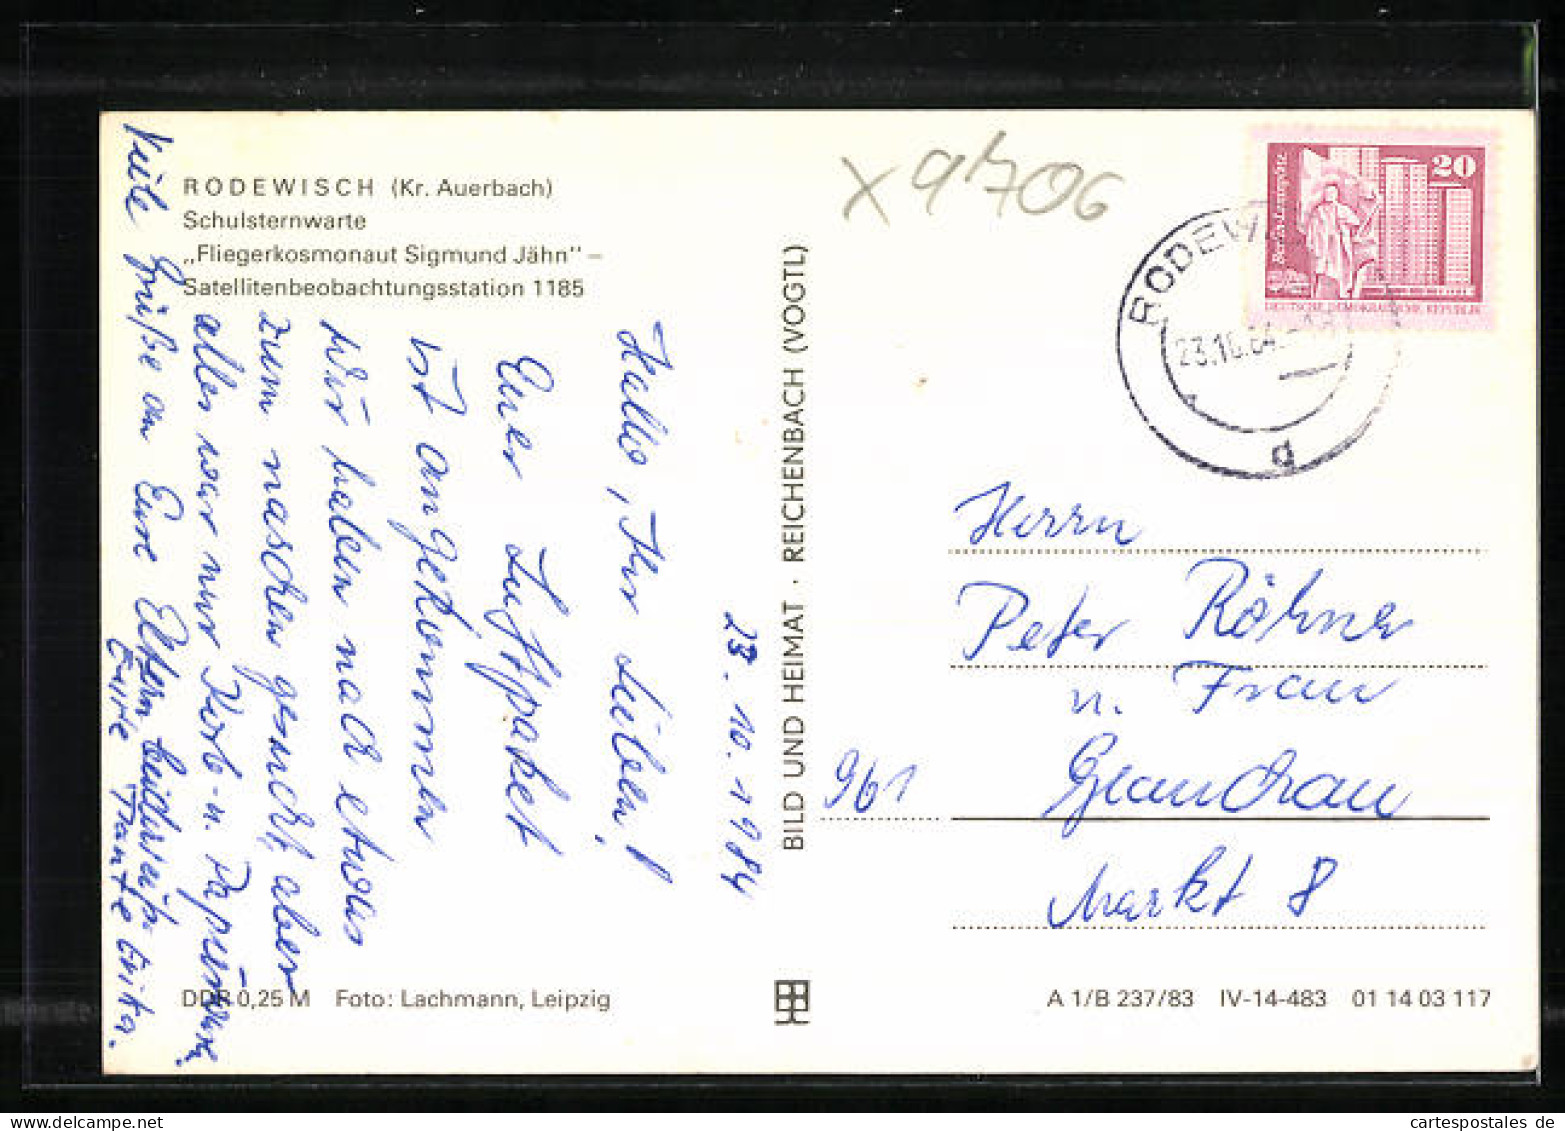 RODEWISCH (Kr. Auerbach)
Schulsternwarte
„Fliegerkosmonaut Sigmund Jähn" –
Satellitenbeobachtungsstation 1185
23. 10. 1984
Hallo, Ihr Lieben!
Euer Luftpaket
ist angekommen
wir haben noch etwas
zum naschen gesucht, aber
alles war nur Kerb- u.
Viele Grüße an Eure Eltern beiderseits
Eure Tante Erika.
DDR 0,25 M Foto: Lachmann, Leipzig
BILD UND HEIMAT · REICHENBACH (VOGTL)
X 9706
20
DEUTSCHE DEMOKRATISCHE REPUBLIK
RODEW
23.10.84
d
Herrn
Peter Röhner
u. Frau
961 Glauchau
Markt 8
A 1/B 237/83 IV-14-483 01 14 03 117
cartespostales de